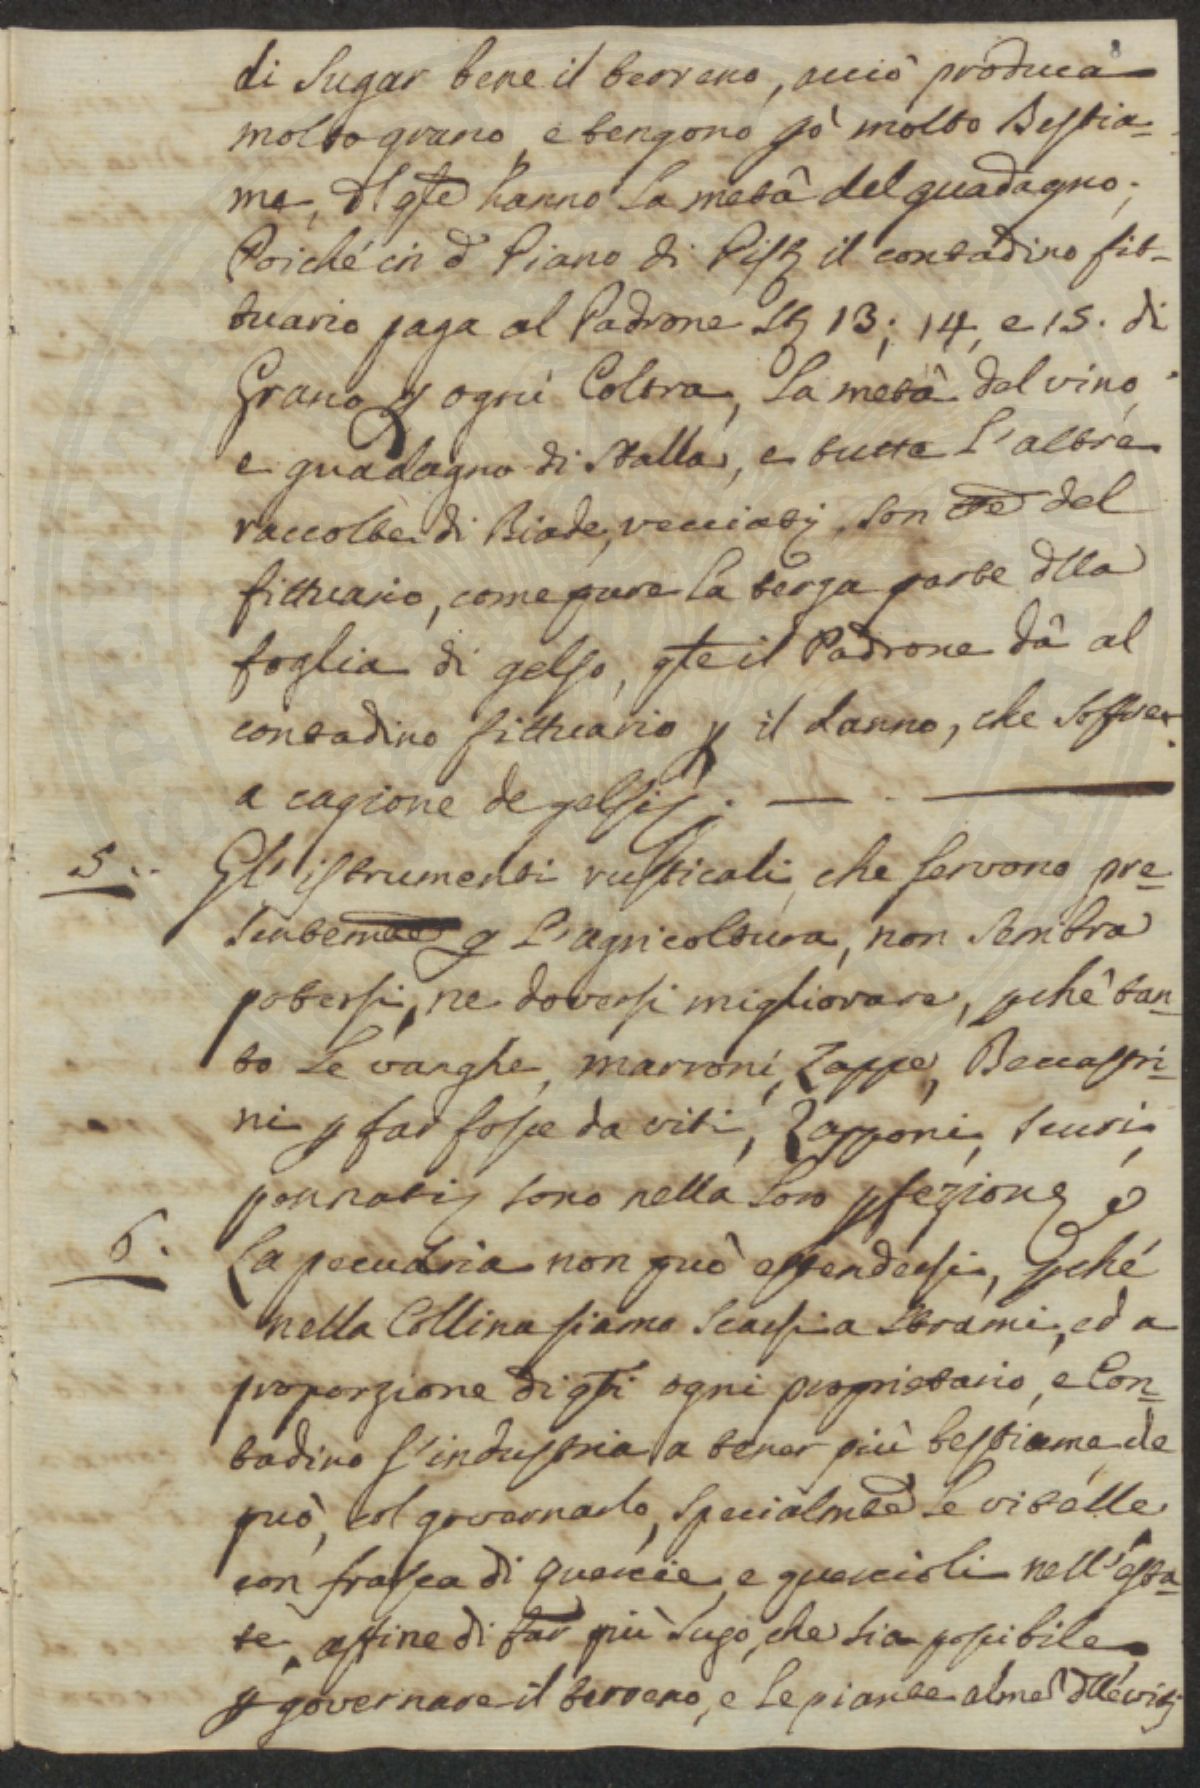 di Sugar bene il terreno, acciò produca
molto grano, e tengono pò molto Bestia-
me, dl qle hanno la metà del guadagno;
Poiché in d Piano di Pist il contadino fit-
tuario paga al Padrone St 13; 14, e 15. di
Grano p ogni Coltra, la metà del vino,
e guadagno di Stalla, e tutte l'altre
raccolte di Biade, vecciati, son del
fittuario, come pure la terza parte dlla
foglia di gelso, qle il Padrone dà al
contadino fittuario p il danno, che soffre
a cagione de gelsi. —
5. Gl'istrumenti rusticali, che servono pre-
sentemte p l'agricoltura, non sembra
potersi, ne doversi migliorare, pchè tan-
to le vanghe, marroni, Zappe, Beccastri-
ni p far fosse da viti, Zapponi, scuri,
pennati, sono nella loro pfezione
6. La pecudria non può estendersi, pché
nella Collina siamo scarsi a strami, ed a
proporzione di qsti ogni proprietario, e Con-
tadino s'industria a tener più bestiame che
può, col governarlo, specialmte le vitelle
con frasca di quercie, e quercioli nell'esta-
te, affine di far più sugo, che sia possibile
p governare il terreno, e le piante alme dlle viti